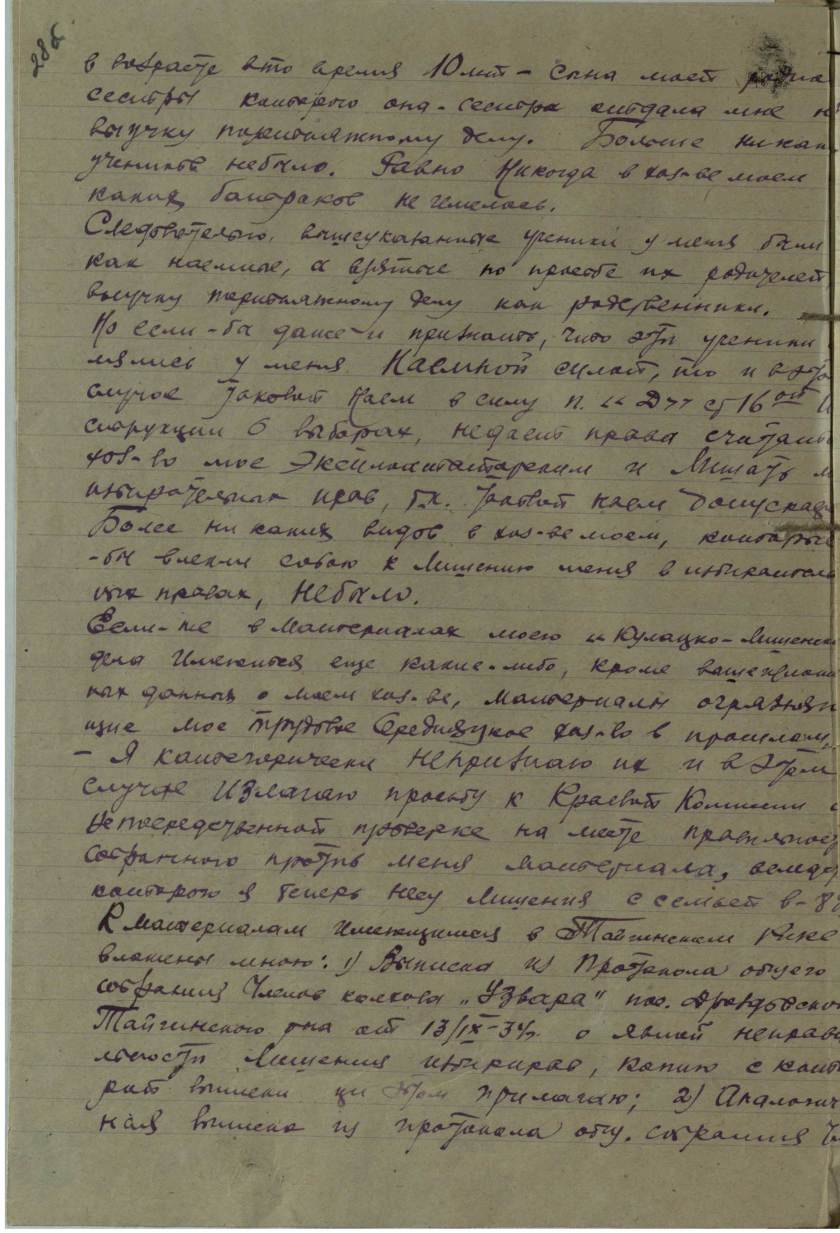 28б.
в возрасте в то время 10 лет – сына моей родно
сестры которого она – сестра отдала мне н
выучку портняжному делу. Больше никак
учеников небыло. Равно Никогда в хоз-ве моем
каких батраков не имелось.
Следовательно, вышеуказанные ученики у меня были
как наемные, а взятые по просьбе их родителей
выучку портняжному делу как родственники.
Но если-ба даже и признать, что эти ученики
лялись у меня Наемной силой, то и в это
случае таковой наем в силу п. "Д" ст 16ой И
струкции о выборах, недает права считать
хоз-во мое Эксплоататорским и Лишать м
избирательных прав, т.к. таковой наем Допускал
Более ни каких видов в хоз-ве моем, которые
-бы влекли собою к Лишению меня в избиратель
ных правах, Небыло.
Если-же в Материалах моего "Кулацко-Лишенск
дела Имеются еще какие-либо, кроме
ных данных о моем хоз-ве, материалы
щие мое трудовое Середняцкое хоз-во в прошлом,
– Я категорически Непризнаю их и в Этом
случае Излагаю просьбу к Краевой Комиссии о
непосредственной проверке на месте правильнос
собранного против меня материала,
которого я теперь несу Лишения с семьей в – 8
К материалам имеющимся в Тайгинском Рике
вложены мною: 1) Выписка из Протокола общего
собрания Членов колхоза „Узвара" пос.
Тайгинского р-на от 13/IX-34г. о явной неправи
льности Лишения избирправ, копию с кото
рой выписки при Этом прилагаю; 2) Аналогич
ная выписка из протокола общ. собрания Ч